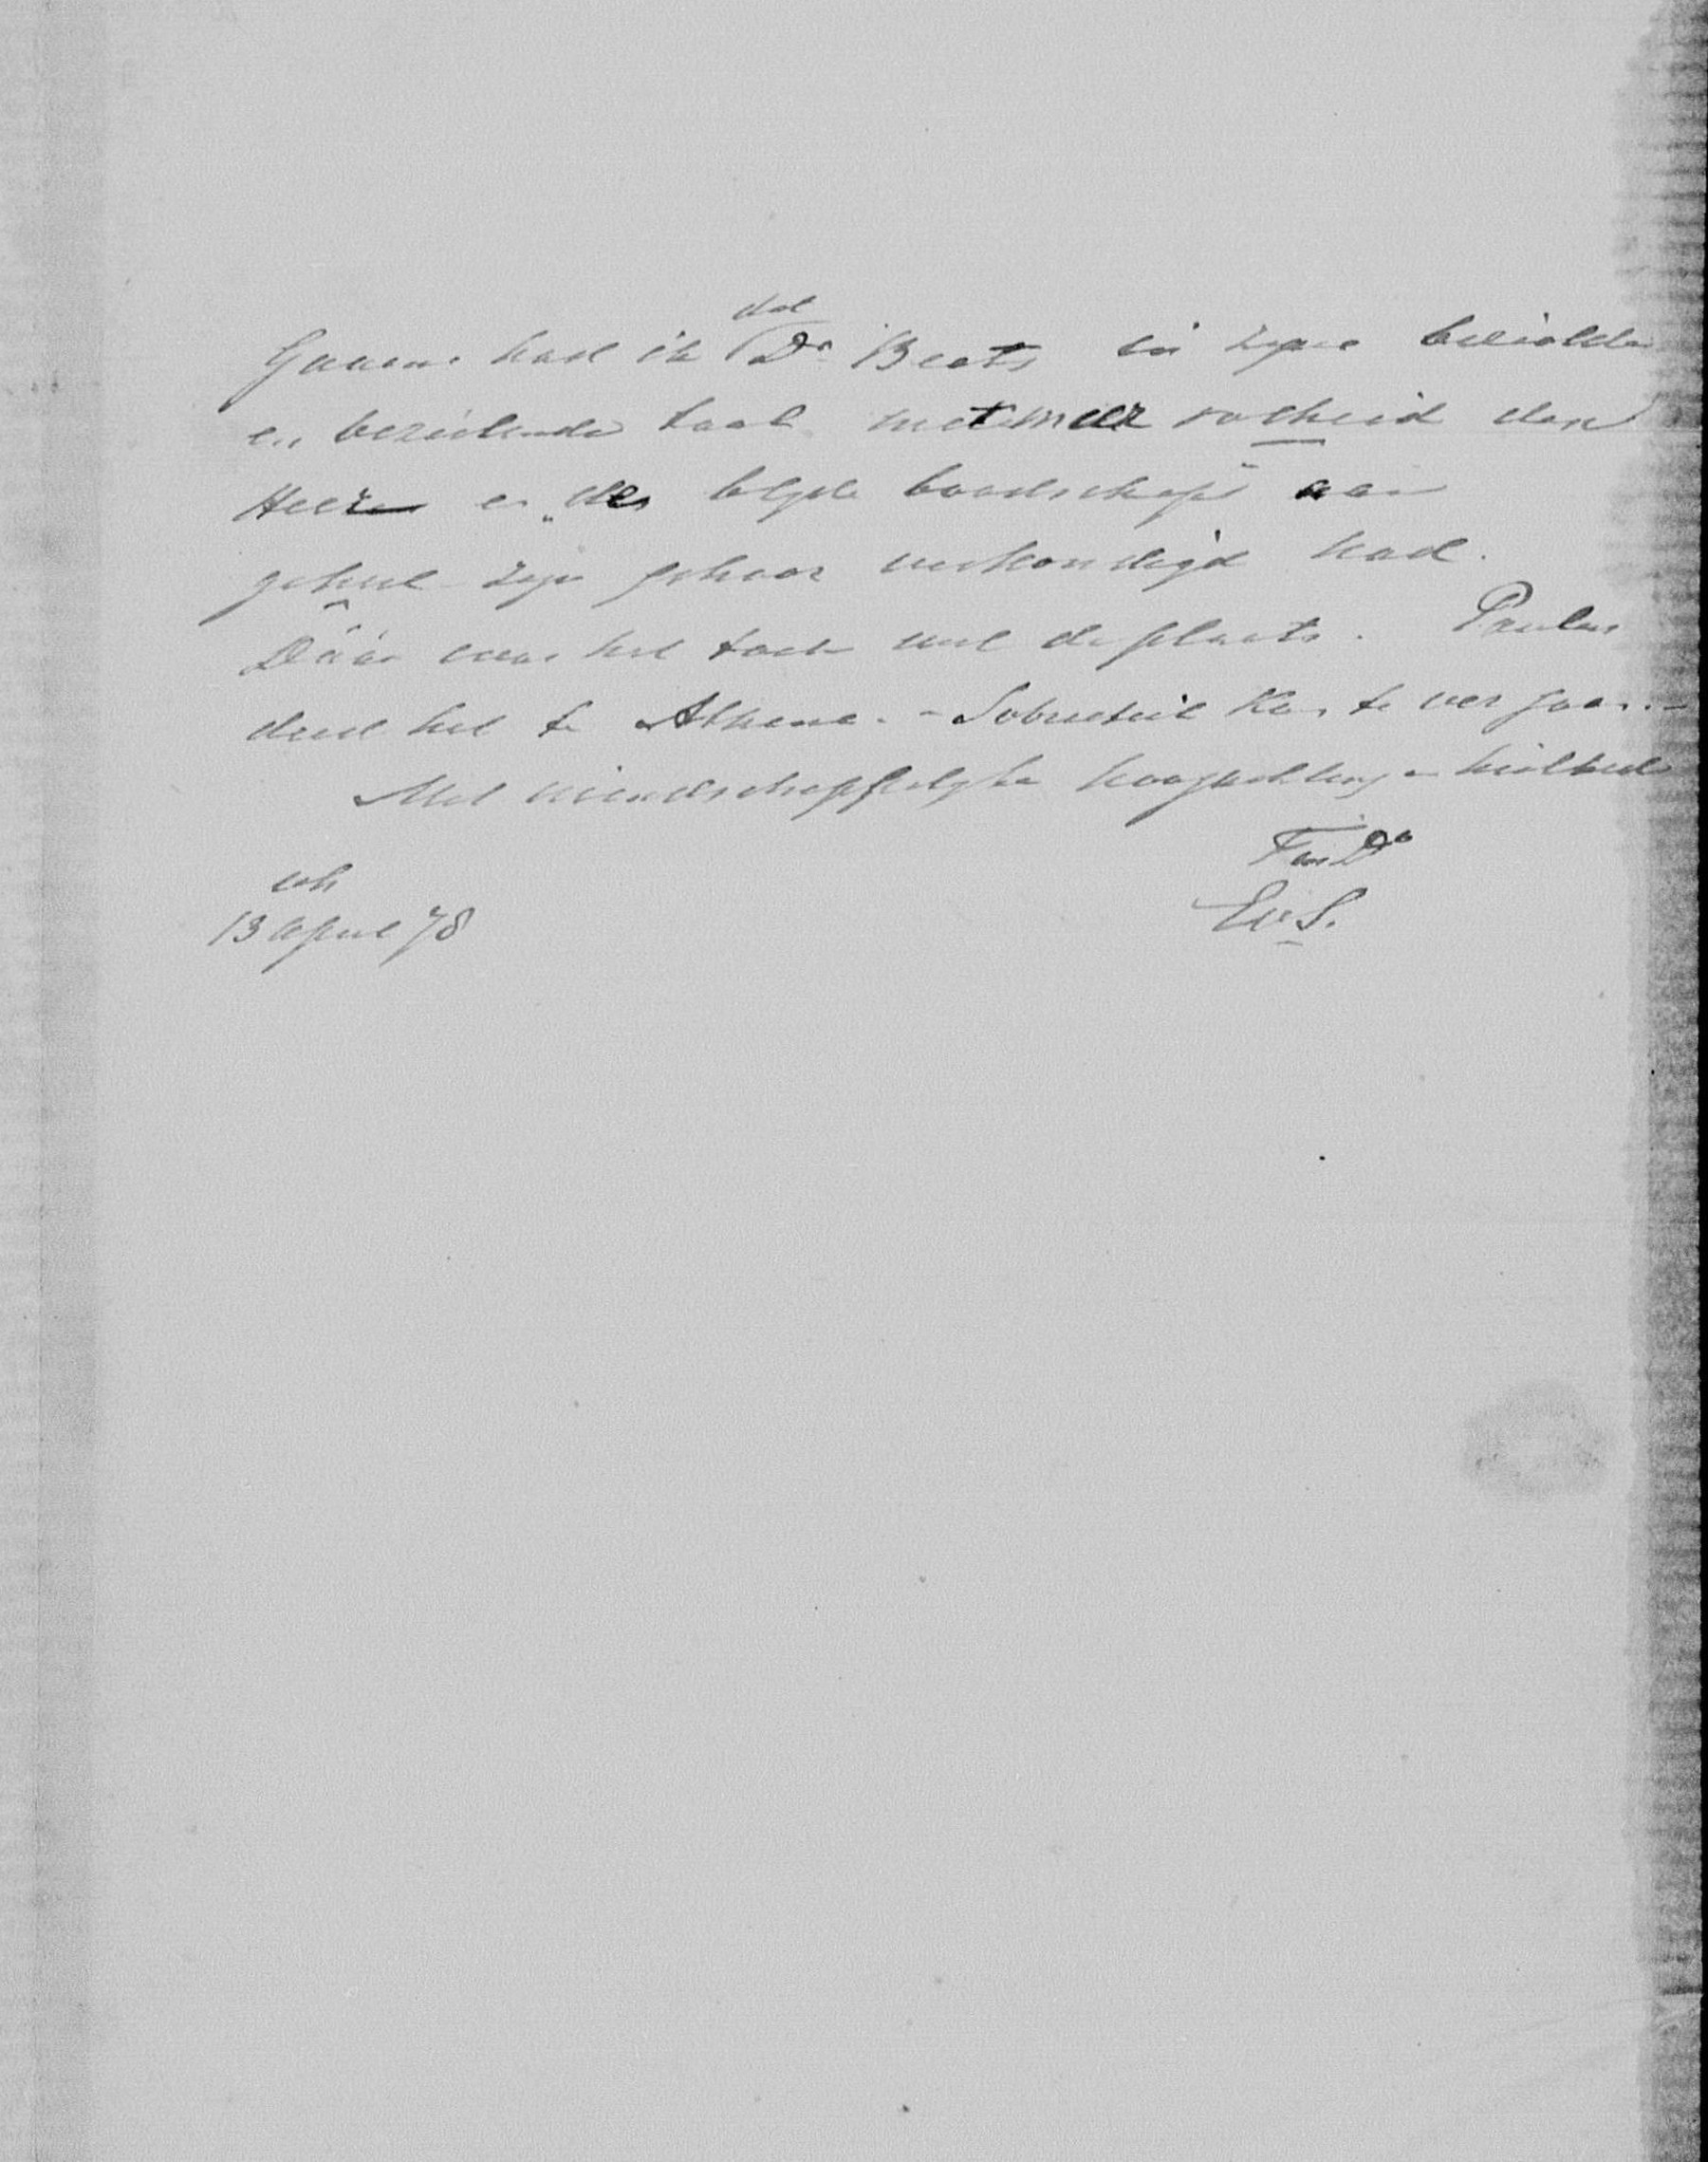 dat
Gaarne had ik Dr Beets in zijne bezielde
en bezielende taal met meer volheid den
Heere en „de blijde boodschap" aan
geheel zijn gehoor verkondigd had.
Dáár was het toch wel de plaats. Paulus
deed het te Athene. – Sobrieteit kan te ver gaan. –
Met vriendschappelijke hoogachting en heilbede
t.
EvS.
13 April 78